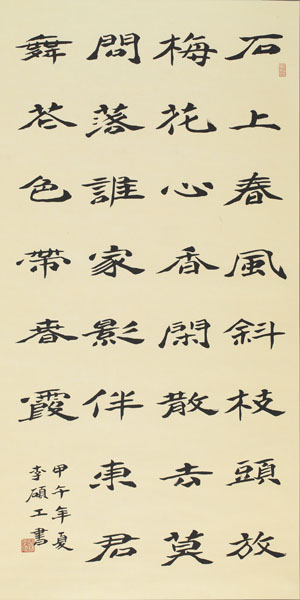 石上春風斜枝頭放
梅花心香閑散去莫
問落誰家影伴東君
舞苍色帶春霞
甲午年夏
李碩工書